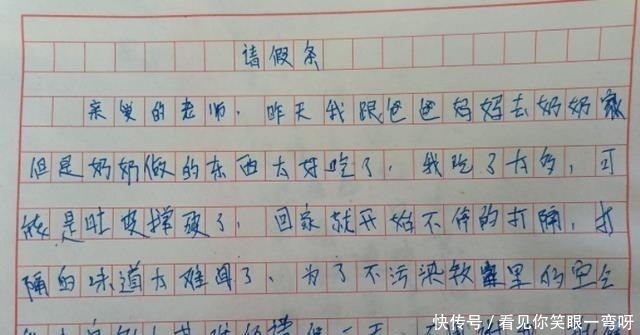 请假条
亲爱的老师，昨天我跟爸爸妈妈去奶奶家
但是奶奶做的东西太好吃了，我吃了太多，可
能是肚皮撑破了，回家就开始不停的打隔，打
隔的味道太难闻了，为了不污染教室里的空气
快传号／看见你笑眼一弯呀